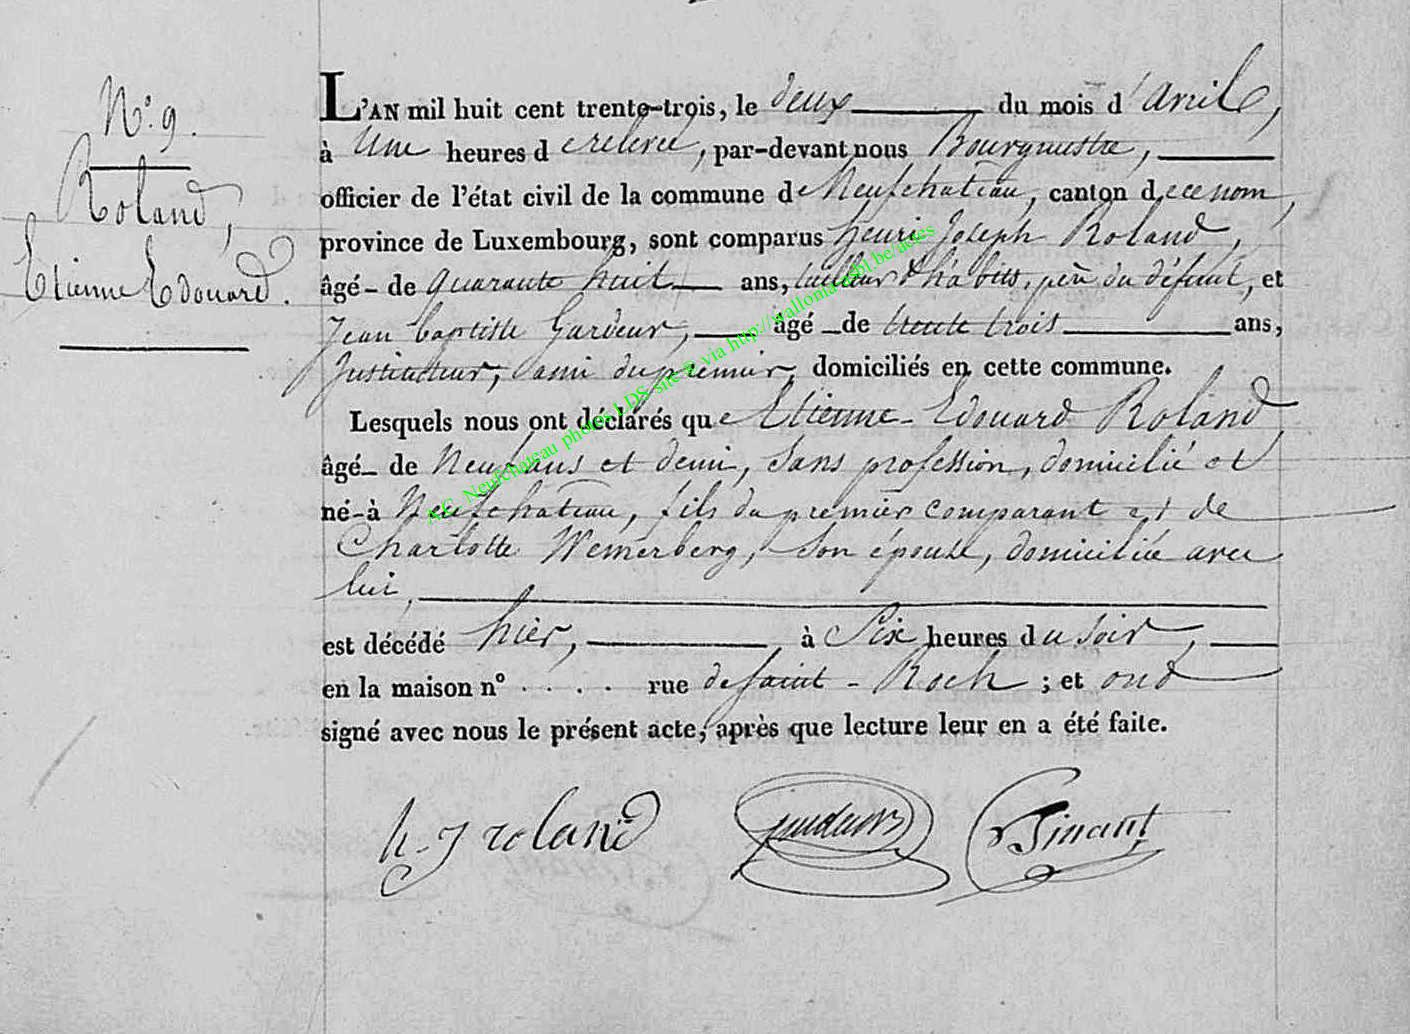 N.° 9.
Roland,
Etienne Edouard.
L'AN mil huit cent trente-trois, le deux du mois d'avril,
à Une heures de relevée, par-devant nous Bourgmestre,
officier de l'état civil de la commune de Neufchateau, canton de ce nom,
province de Luxembourg, sont comparus henri Joseph Roland,
âgé de quarante huit ans, tailleur d'habits, père du défunt, et
Jean baptiste Gardeur, âgé de trente trois ans,
Instituteur, ami du premier, domiciliés en cette commune.
Lesquels nous ont déclarés que Etienne-Edouard Roland
âgé de Neuf ans et demi, Sans profession, domicilié et
né-à Neufchateau, fils du premier comparant et de
Charlotte Wemerberg, Son épouse, domiciliée avec
lui,
est décédé hier, à Six heures du soir,
en la maison n° . . . . rue de Saint-Roch ; et ont
signé avec nous le présent acte, après que lecture leur en a été faite.
h-J roland
AC Neufchateau photos LDS site & via http://wallonia-asbl.be/actes